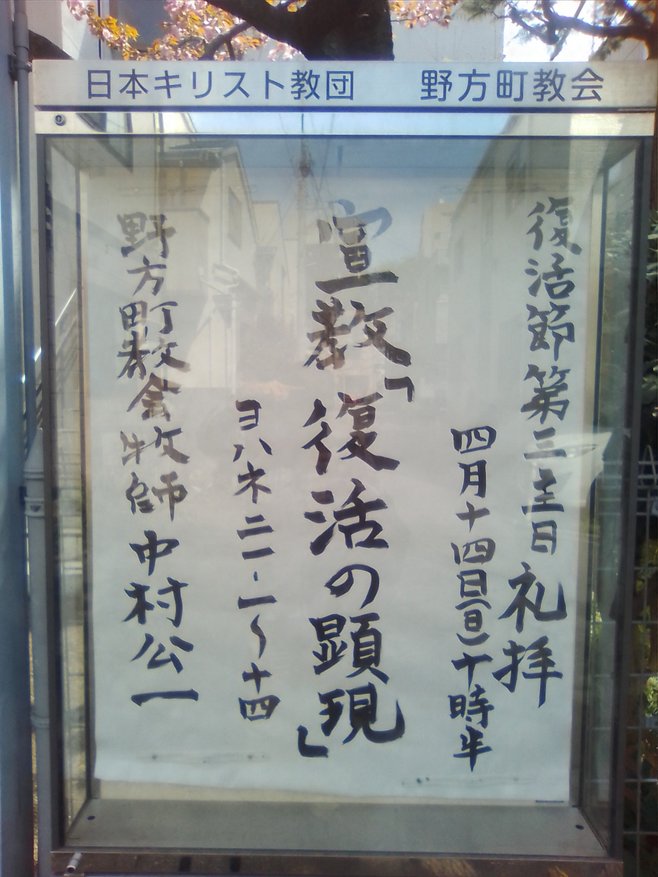 日本キリスト教団　野方町教会
復活節第三主日 礼拝
四月十四日(日)十時半
宣教「復活の顕現」
ヨハネ二一・一〜十四
野方町教会牧師 中村公一